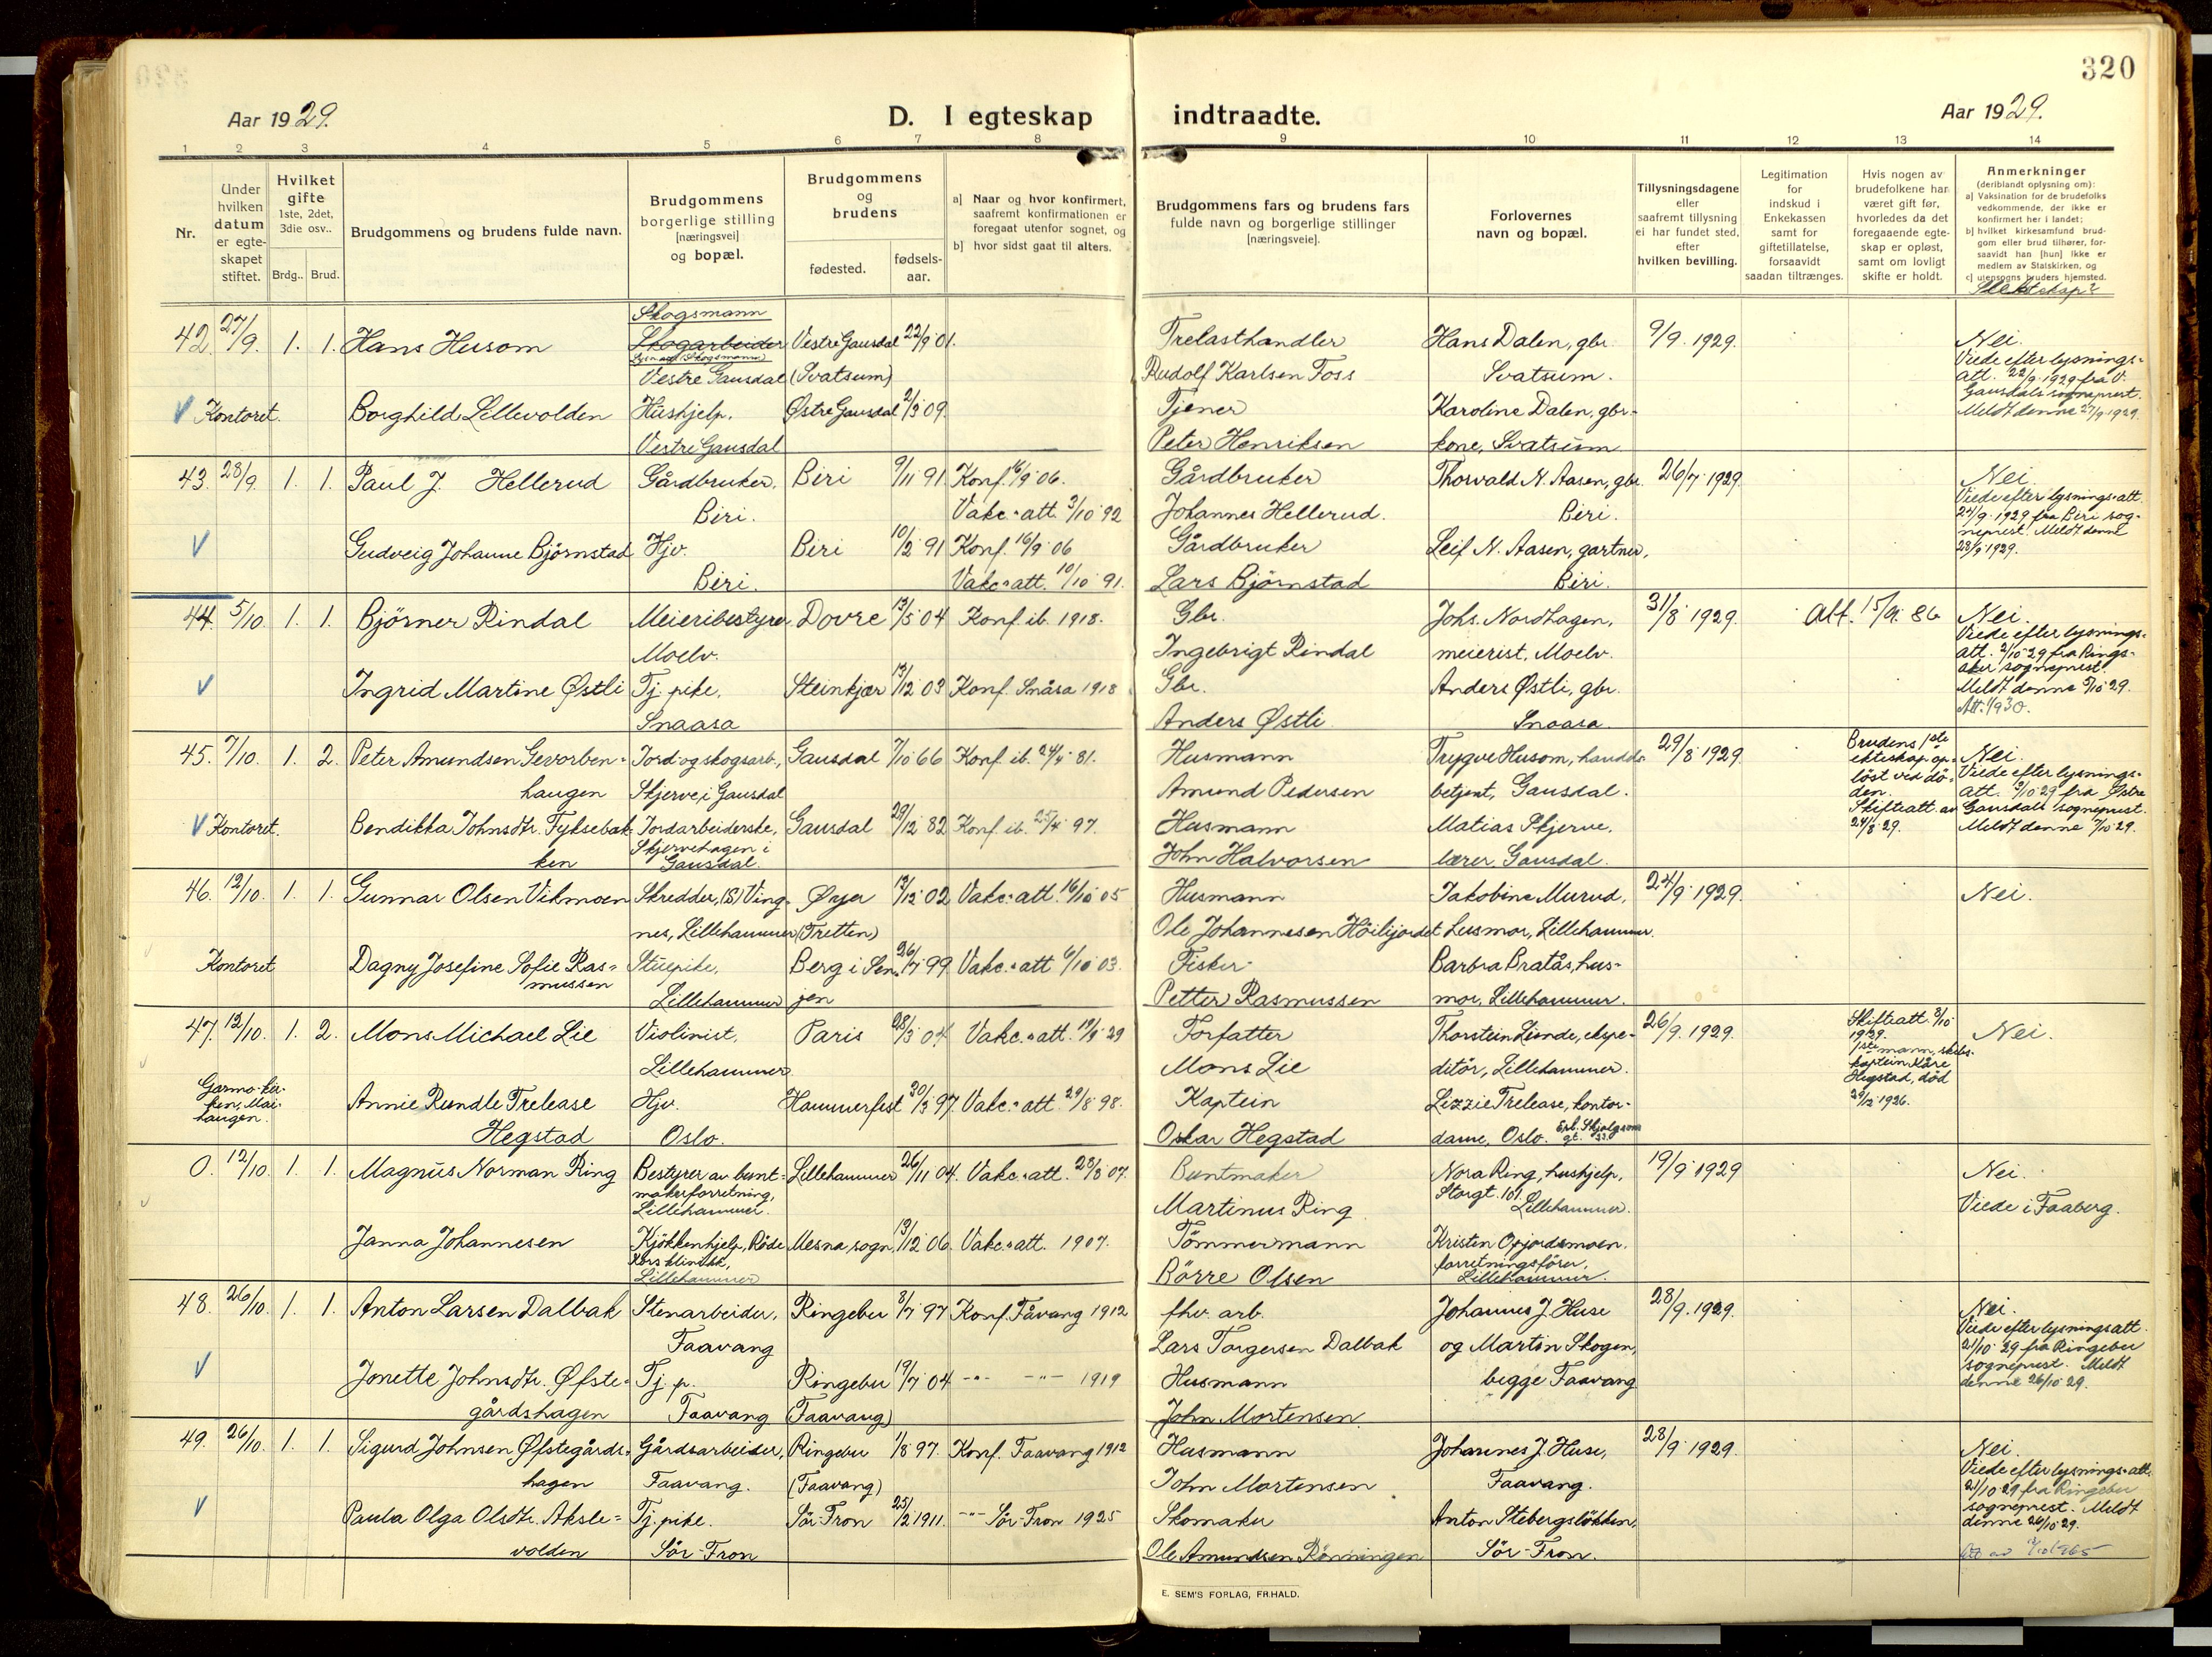 320
Aar 1929.
D. I egteskap indtraadte.
Aar 1929.
1 2 3 4 5 6 7 8 9 10 11 12 13 14
Nr.
Under hvilken datum er egte-skapet stiftet.
Hvilket gifte
1ste, 2det, 3die osv..
Brdg.. Brud.
Brudgommens og brudens fulde navn.
Brudgommens borgerlige stilling [næringsvei] og bopæl.
Brudgommens og brudens
fødested.
fødsels-aar.
a] Naar og hvor konfirmert, saafremt konfirmationen er foregaat utenfor sognet, og
b] hvor sidst gaat til alters.
Brudgommens fars og brudens fars fulde navn og borgerlige stillinger [næringsveie].
Forlovernes navn og bopæl.
Tillysningsdagene eller saafremt tillysning ei har fundet sted, efter hvilken bevilling.
Legitimation for indskud i Enkekassen samt for giftetillatelse, forsaavidt saadan tiltrænges.
Hvis nogen av brudefolkene har været gift før, hvorledes da det foregaaende egte-skap er opløst, samt om lovligt skifte er holdt.
Anmerkninger
(deriblandt oplysning om):
a) Vaksination for de brudefolks vedkommende, der ikke er konfirmert her i landet;
b) hvilket kirkesamfund brud-gom eller brud tilhører, for-saavidt han [hun] ikke er medlem av Statskirken, og
c) utensogns bruders hjemsted.
Slektskap?
Skogsmann
42. 27/9. 1. 1. Hans Husom Skogarbeider Vestre Gausdal 22/9 01. Trelasthandler Hans Dalen, gbr. 9/9. 1929. Nei.
Vestre Gausdal (Svatsum) Rudolf Karlsen Foss Svatsum. Viede efter lysnings-att. 22/9 1929 fra V. Gausdals sogneprest. Meldt denne 27/9 1929.
Kontoret. Borghild Lillevolden Hushjelp. Østre Gausdal 2/3 09. Tjener Karoline Dalen, gbr.-
Vestre Gausdal Peter Henriksen kone, Svatsum
43. 28/9. 1. 1. Paul J. Hellerud Gårdbruker, Biri 9/11 91 Konf. 16/9 06. Gårdbruker Thorvald N. Aasen, gbr. 26/7 1929. Nei.
Biri. Vakc.att. 3/10 92 Johannes Hellerud. Biri. Viede efter lysnings.att 24/9. 1929 fra Biri sog-neprest. Meldt denne 28/9 1929.
Gudveig Johanne Bjørnstad Hjv. Biri 10/2 91 Konf. 16/9 06 Gårdbruker Leif N. Aasen, gartner,
Biri. Vakc.att. 10/10 91. Lars Bjørnstad Biri.
44. 5/10. 1. 1. Bjørner Rindal Meieribestyrer, Dovre 13/5 04 Konf. ib. 1918. Gbr. Johs. Nordhagen, 31/8 1929. Att. 15/9. 86 Nei.
Moelv. Ingebrigt Rindal meierist, Moelv. Viede efter lysnings-att. 2/10 29 fra Rings-aker sogneprest. Meldt denne 5/10 29.
Ingrid Martine Østli Tj. pike, Steinkjær 13/12 03 Konf. Snåsa 1918 Gbr. Anders Østli, gbr.
Snaasa Anders Østli Snaasa
45. 7/10. 1. 2. Peter Amundsen Gevorben- Jord og skogsarb., Gausdal 7/10 66 Konf. ib. 24/4 81. Husmann Trygve Husom, handels- 29/8 1929. Brudens 1ste ekteskap op-løst ved dø-den. Skifteatt. av 24/8 29. Nei.
haugen Skjerve i Gausdal Amund Pedersen betjent, Gausdal. Viede efter lysnings-att. 2/10 29 fra Østre Gausdals sogneprest. Meldt denne 7/10 29.
Kontoret. Bendikka Johnsdtr. Fyksebak- Jordarbeiderske, Gausdal 29/12 82 Konf. ib. 25/4 97. Husmann Matias Skjerve,
ken Skjervehagen i Gausdal. John Halvorsen lærer, Gausdal.
46. 12/10. 1. 1. Gunnar Olsen Vikmoen Skredder, (S) Ving- Øyer 13/12 02 Vakc.att. 16/10 05 Husmann Jakobine Murud, 24/9. 1929. Nei.
nes, Lillehammer (Tretten) Ole Johannesen Höilijordet husmor, Lillehammer.
Kontoret Dagny Josefine Sofie Ras-mussen Stuepike, Berg i Sen- 26/7 99 Vakc.att 6/10 03. Fisker Barbra Bratås, hus-
Lillehammer jen Petter Rasmussen mor, Lillehammer.
47. 12/10. 1. 2. Mons Michael Lie Violinist, Paris 28/3 04 Vakc.att. 19/9 29 Forfatter Thorstein Lunde, ekspe- 26/9. 1929. Skifteatt. 3/10 1929. 1ste mann, skibs-kaptein Kåre Hegstad, død 29/12 1926. Nei.
Lillehammer. Mons Lie ditör, Lillehammer.
Garmo-kir-ken, Mai-haugen. Annie Rundle Trelease Hjv. Hammerfest 30/3 97. Vakc.att. 29/8 98. Kaptein Lizzie Trelease, kontor-
Hegstad Oslo. Oskar Hegstad dame, Oslo. Erl. Skjalgsons gt. 33.
0. 12/10. 1. 1. Magnus Norman Ring Bestyrer av bunt- Lillehammer 26/11 04. Vakc.att. 28/8 07. Buntmaker Nora Ring, hushjelp, 19/9 1929 Nei.
makerforretning, Lillehammer. Martinus Ring Storgt. 101. Lillehammer. Viede i Faaberg.
Janna Johannesen Kjökkenhjelp, Röde Mesna sogn 13/12 06. Vakc.att. 1907. Tömmermann Kristen Opjordsmoen.
Kors klinikk, Lillehammer Börre Olsen forretningsförer, Lillehammer.
48. 26/10. 1. 1. Anton Larsen Dalbak Stenarbeider, Ringebu 8/7 97 Konf. Fåvang 1912 fhv. arb. Johannes J. Huse 28/9. 1929. Nei.
Faavang Lars Torgersen Dalbak og Martin Skogen, Viede efter lysningsatt. 21/10 29 fra Ringebu sogneprest. Meldt denne 26/10 29.
Jonette Johnsdtr. Øfste- Tj. p. Ringebu 19/7 04 -"- -"- 1919 Husmann begge Faavang
gårdshagen Faavang (Faavang) John Mortensen
49. 26/10. 1. 1. Sigurd Johnsen Øfstegårds- Gårdsarbeider, Ringebu 1/8 97. Konf. Faavang 1912 Husmann Johannes J. Huse, 28/9 1929. Nei.
hagen Faavang. (Faavang) John Mortensen Faavang. Viede efter lysnings.att. 21/10 29 fra Ringebu sogneprest. Meldt denne 26/10 29.
Paula Olga Olsdtr. Aksle- Tj. pike. Sör-Fron 25/2 1911. -"- Sör-Fron 1925 Skomaker Anton Stebergslökken,
volden Sör-Fron Ole Amundsen Rönningen Sör-Fron.
E. SEM'S FORLAG, FR.HALD.